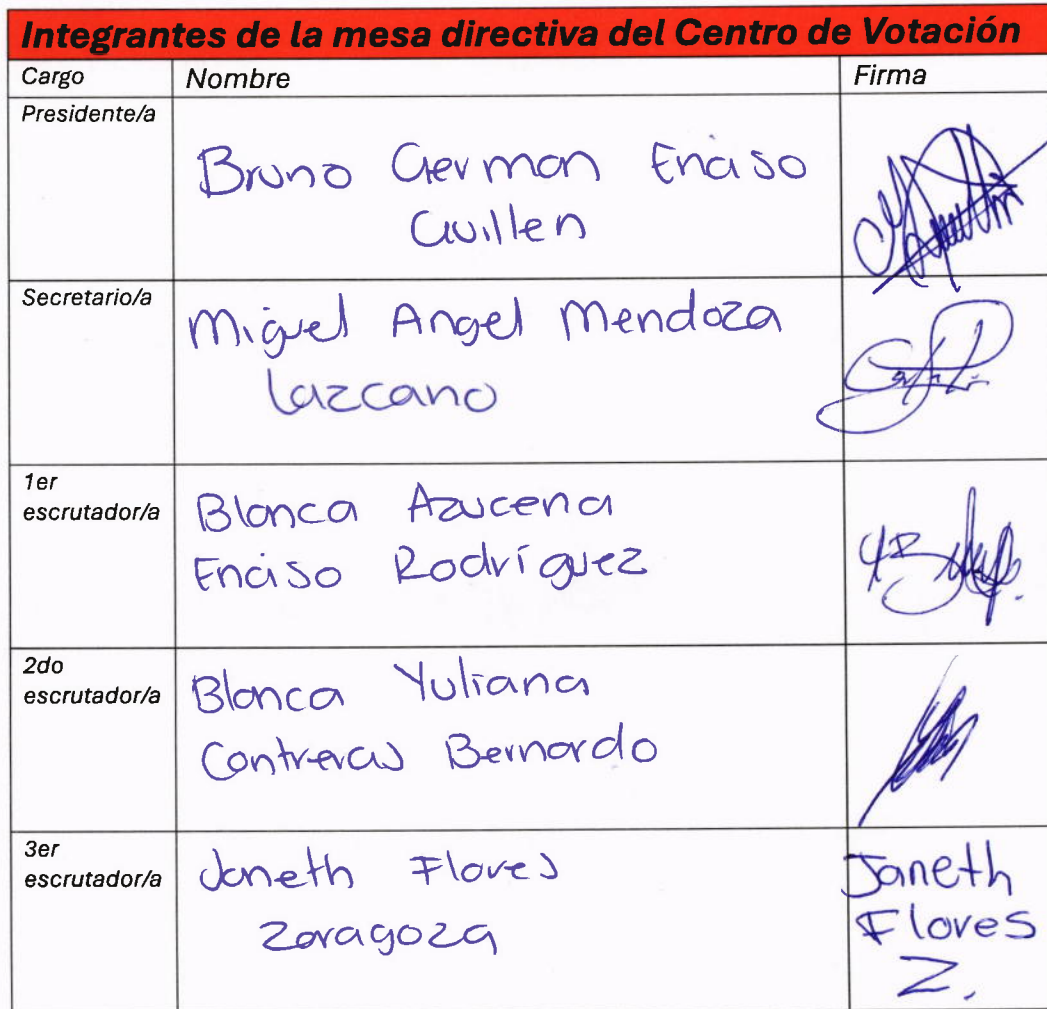 Integrantes de la mesa directiva del Centro de Votación
Cargo Nombre Firma
Presidente/a
Bruno German Enciso
Guillen
Secretario/a
Miguel Angel Mendoza
Lazcano
1er
escrutador/a
Blanca Azucena
Enciso Rodríguez
2do
escrutador/a
Blanca Yuliana
Contreras Bernardo
3er
escrutador/a
Janeth Flores
Zaragoza
Janeth
Flores
Z.